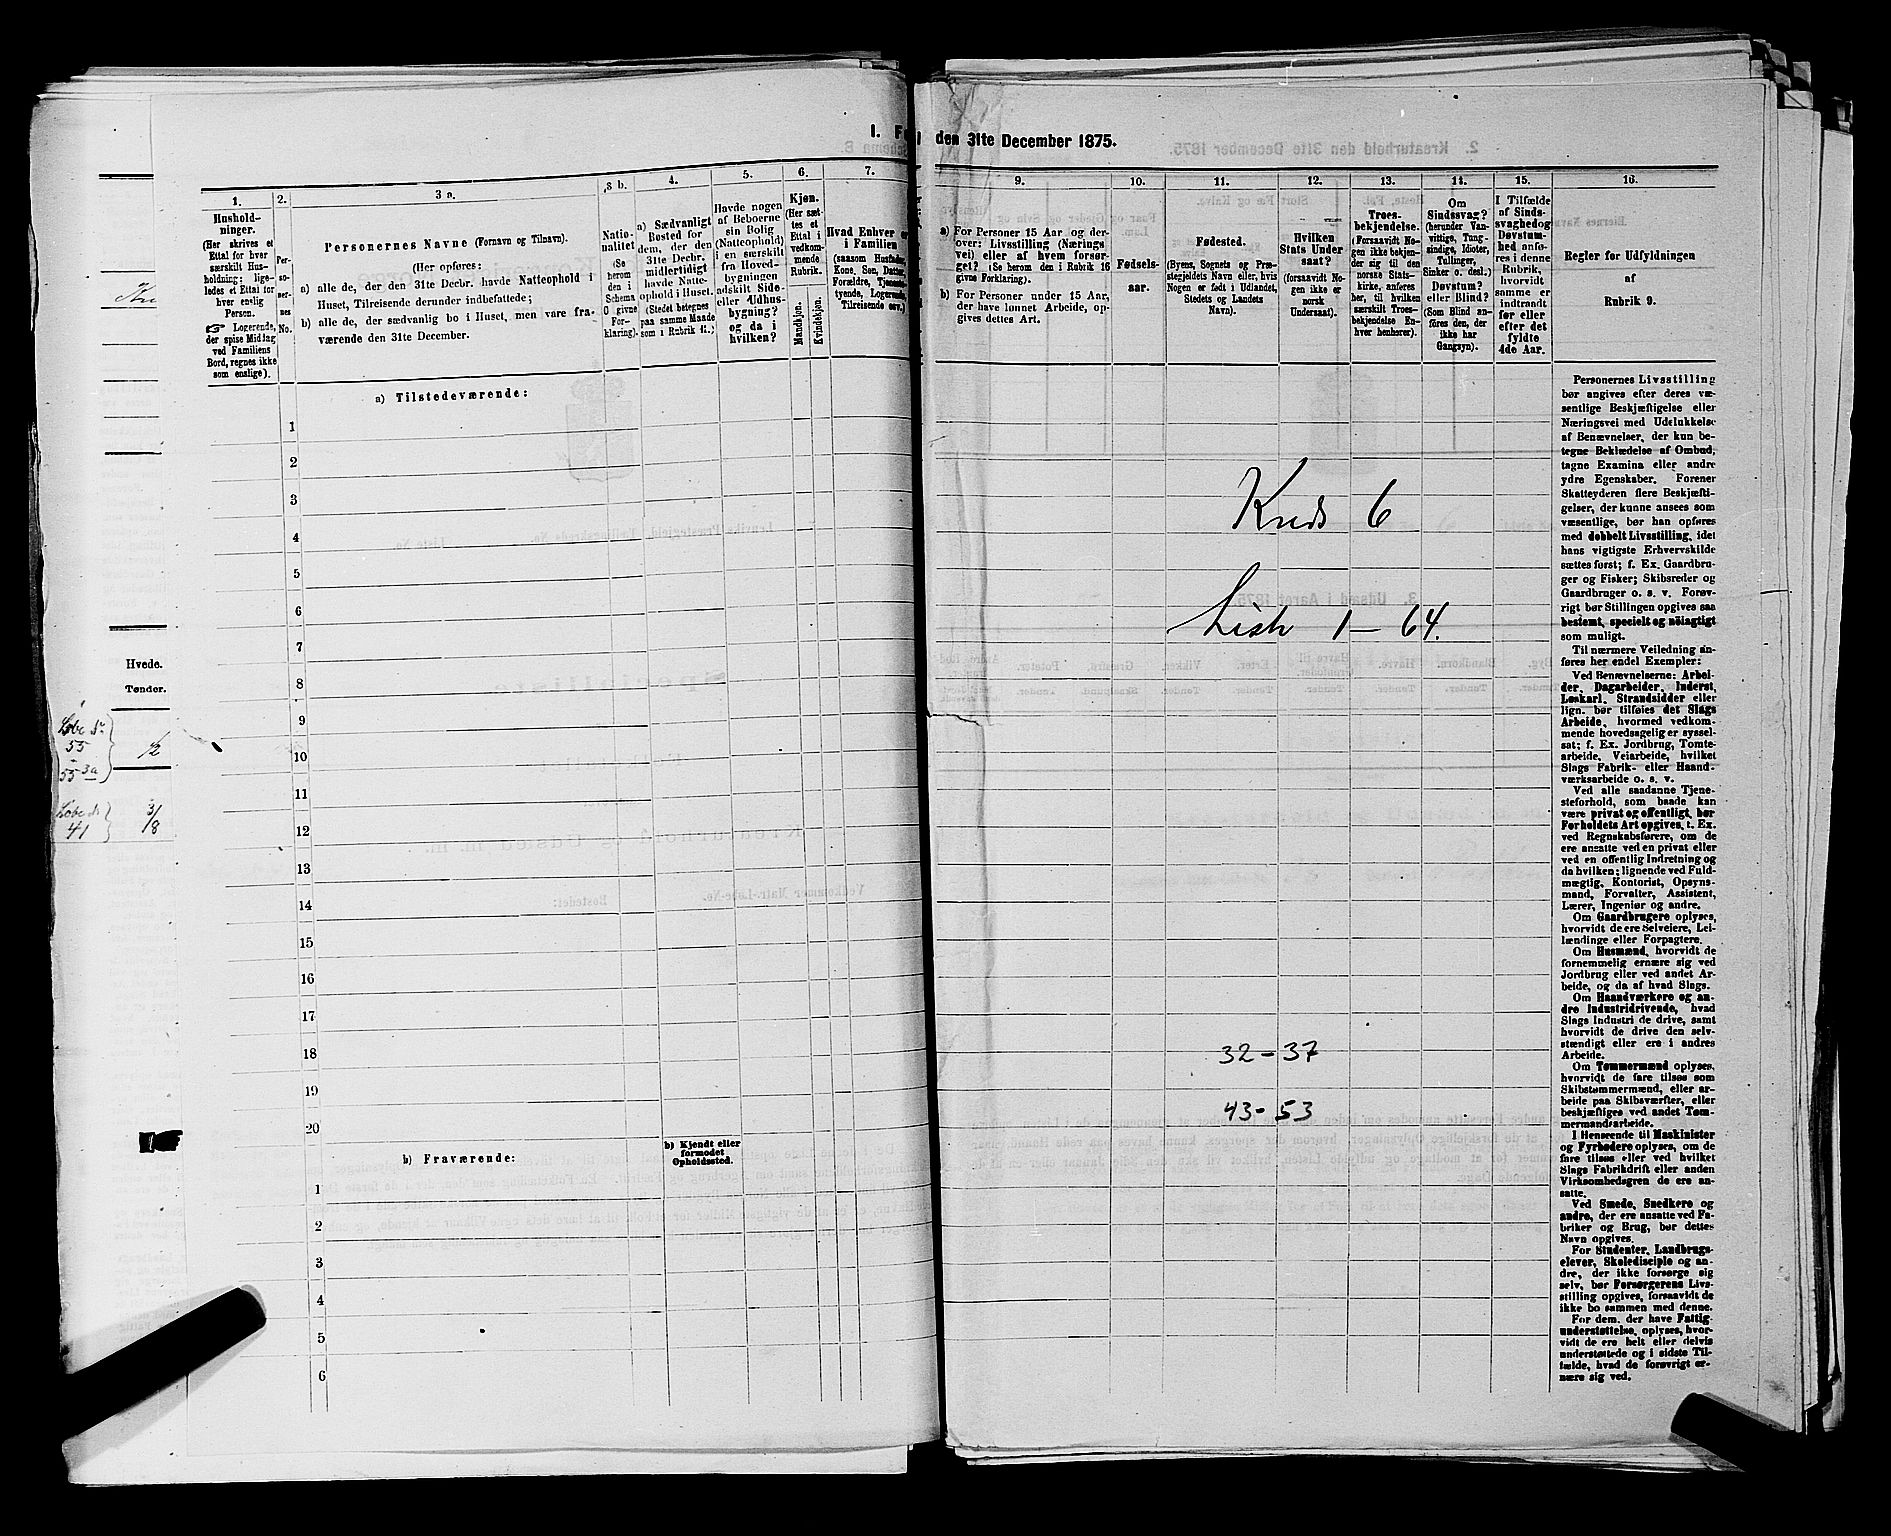 Hvede.
Tønder.
Løbe №
55
55 3a
1/2
Løbe №
41
3/8
1. F
den 31te December 1875.
1.
Hushold-
ninger.
(Her skrives et
Ettal for hver
særskilt Hus-
holdning; lige-
ledes et Ettal for
hver enslig
Person.
Logerende,
der spise Middag
ved Familiens
Bord, regnes ikke
som enslige).
2.
Per-
so-
ner-
nes
No.
3 a.
Personernes Navne (Fornavn og Tilnavn).
(Her opføres:
a) alle de, der den 31te Decbr. havde Natteophold i
Huset, Tilreisende derunder indbefattede;
b) alle de, der sædvanlig bo i Huset, men vare fra-
værende den 31te December.
3 b.
Natio-
nalitet
(Se
herom
den i
Schema
O givne
For-
klaring).
4.
a) Sædvanligt
Bosted for
dem, der den
31te Decbr.
midlertidigt
havde Natte-
ophold i Huset.
(Stedet betegnes
paa samme Maade
som i Rubrik 11.)
5.
Havde nogen
af Beboerne
sin Bolig
(Natteophold)
i en særskilt
fra Hoved-
bygningen
adskilt Side-
eller Udhus-
bygning?
og da i
hvilken?
6.
Kjøn.
(Her sæt-
tes et
Ettal i
vedkom-
mende
Rubrik.
Mandkjøn.
Kvindekjøn.
7.
Hvad Enhver er
i Familien
(saasom Husfader,
Kone, Søn, Datter,
Forældre, Tjenes-
tyende, Logerende,
Tilreisende osv.)
9.
a) For Personer 15 Aar og der-
over: Livsstilling (Nærings
vei) eller af hvem forsør-
get? (Se herom den i Rubrik 16
givne Forklaring).
b) For Personer under 15 Aar,
der have lønnet Arbeide, op-
gives dettes Art.
10.
Fødsels-
aar.
11.
Fødested.
(Byens, Sognets og Præ-
stegjeldets Navn eller, hvis
Nogen er født i Udlandet,
Stedets og Landets
Navn).
12.
Hvilken
Stats Under
saat?
(forsaavidt No-
gen ikke er
norsk
Undersaat).
13.
Troes-
bekjendelse.
(Forsaavidt No-
gen ikke bekjen-
der sig til den
norske Stats-
kirke, anføres
her, til hvilken
særskilt Troes-
bekjendelse En-
hver henhører).
14.
Om
Sindssvag?
(herunder Van-
vittige, Tung-
sindige, Idioter,
Tullinger,
Sinker o. desl.)
Døvstum?
eller Blind?
(Som Blind an-
føres den, der
ikke har
Gangsyn).
15.
I Tilfælde
af Sinds-
svaghedog
Døvstum-
hed anfø-
res i denne
Rubrik,
hvorvidt
samme er
indtraadt
før eller
efter det
fyldte
4de Aar.
16.
Regler for Udfyldningen
af
Rubrik 9.
a) Tilstedeværende:
1
2
3
4
5
6
7
8
9
10
11
12
13
14
15
16
17
18
19
20
b) Fraværende:
b) Kjendt eller
formodet
Opholdssted.
1
2
3
4
5
6
Kreds 6
Liste 1 – 64.
32 – 37
43 - 53
Personernes Livsstilling
bør angives efter deres væ-
sentlige Beskjæftigelse eller
Næringsvei med Udelukkelse
af Benævnelser, der kun be-
tegne Beklædelse af Ombud,
tagne Examina eller andre
ydre Egenskaber. Forener
Skatteyderen flere Beskjæfti-
gelser, der kunne ansees som
væsentlige, bør han opføres
med dobbelt Livsstilling, idet
hans vigtigste Erhvervskilde
sættes først; f. Ex. Gaardbru-
ger og Fisker; Skibsreder og
Gaardbruger o. s. v. Forøv-
rigt bør Stillingen opgives saa
bestemt, specielt og nøiagtigt
som muligt.
Til nærmere Veiledning an-
føres her endel Exempler:
Ved Benævnelserne: Arbei-
der, Dagarbeider, Inderst,
Løskarl, Strandsidder eller
lign. bør tilføies det Slags
Arbeide, hvormed vedkom-
mende hovedsagelig er syssel-
sat; f. Ex. Jordbrug, Tomte-
arbeide, Veiarbeide, hvilket
Slags Fabrik- eller Haand-
værksarbeide o. s. v.
Ved alle saadanne Tjene-
steforhold, som baade kan
være privat og offentligt, bør
Forholdets Art opgives, t. Ex.
ved Regnskabsførere, om de
ere ansatte ved en privat eller
ved en offentlig Indretning og
da hvilken; lignende ved Fuld-
mægtig, Kontorist, Opsyns-
mand, Forvalter, Assistent,
Lærer, Ingeniør og andre.
Om Gaardbrugere oplyses,
hvorvidt de ere Selveiere, Lei-
lændinge eller Forpagtere.
Om Husmænd, hvorvidt de
fornemmelig ernære sig ved
Jordbrug eller ved andet Ar-
beide, og da af hvad Slags.
Om Haandværkere og an-
dre Industridrivende, hvad
Slags Industri de drive, samt
hvorvidt de drive den selv-
stændigt eller ere i andres
Arbeide.
Om Tømmermænd oplyses,
hvorvidt de fare tilsøs som
Skibstømmermænd, eller ar-
beide paa Skibsværfter, eller
beskjæftiges ved andet Tøm-
mermandsarbeide.
I Henseende til Maskinister
og Fyrbødere oplyses, om de
fare tilsøs eller ved hvilket
Slags Fabrikdrift eller anden
Virksombedsgren de ere an-
satte.
Ved Smede, Snedkere og
andre, der ere ansatte ved Fa-
briker og Brug, bør dettes
Navn opgives.
For Studenter, Landbrugs-
elever, Skoledisciple og an-
dre, der ikke forsørge sig
selv, bør Forsørgerens Livs-
stilling opgives, forsaavidt de
ikke bo sammen med denne.
For dem. der have Fattig-
understøttelse, oplyses, hvor-
vidt de ere helt eller delvis
understøttede og i sidste Til-
fælde, hvad de forøvrigt er-
nære sig ved.